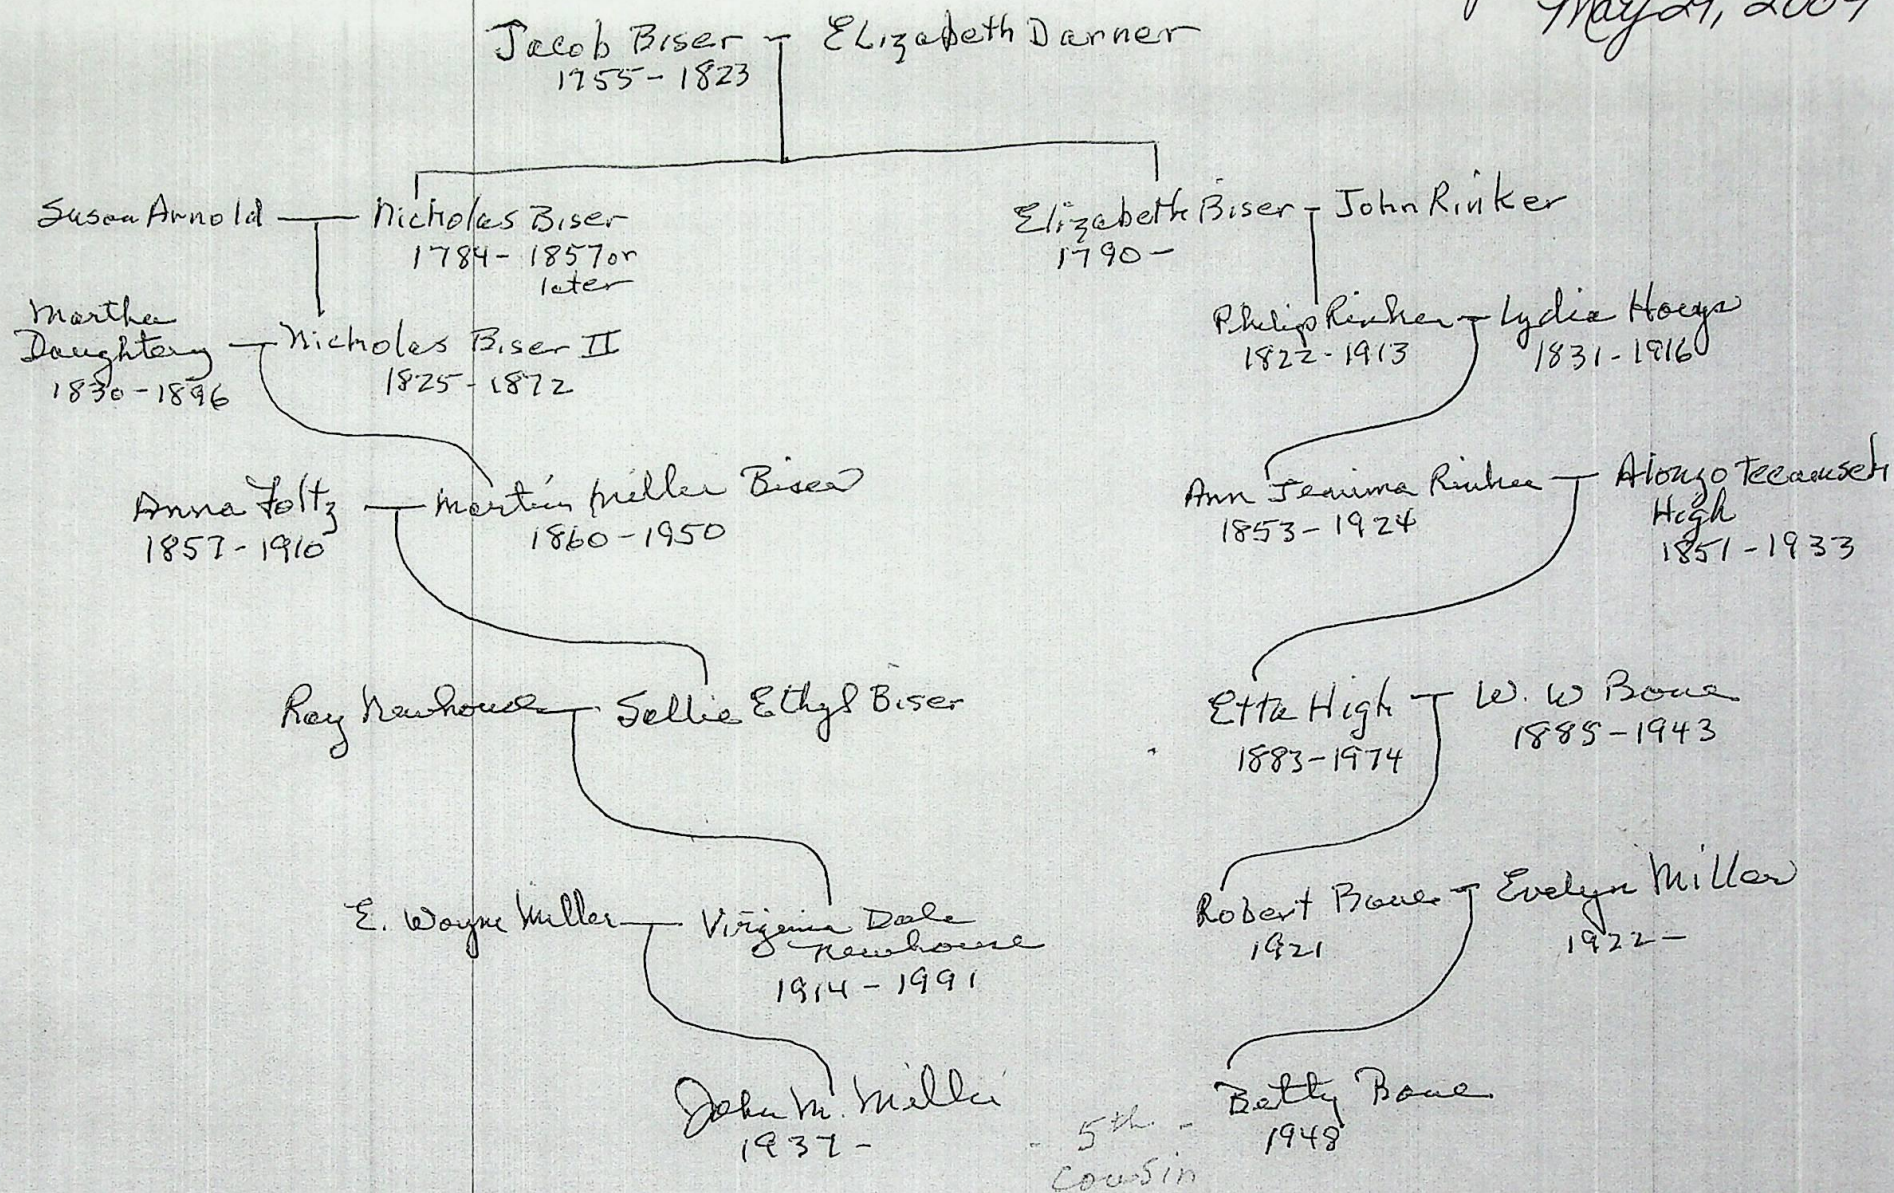 May 29, 2009
Jacob Biser - Elizabeth Darner
1755 - 1823
Susan Arnold - Nicholas Biser
1784 - 1857 or
later
Elizabeth Biser - John Rinker
1790 -
Martha
Daughtery - Nicholas Biser II
1830 - 1896
1825 - 1872
Philip Rinker - Lydia
1822 - 1913
1831 - 1916
Anna Foltz - Martin Miller Biser
1857 - 1910
1860 - 1950
Ann Jemima Rinker - Alonzo Tecumseh
High
1853 - 1924
1851 - 1933
Ray Newhouse - Sallie Ethyl Biser
Etta High - W. W Bowe
1883 - 1974
1885 - 1943
E. Wayne Miller - Virginia Dale
Newhouse
1914 - 1991
Robert Bowe - Evelyn Miller
1921
1922 -
John M. Miller
1937 -
Betty Bowe
1948
- 5th -
cousin